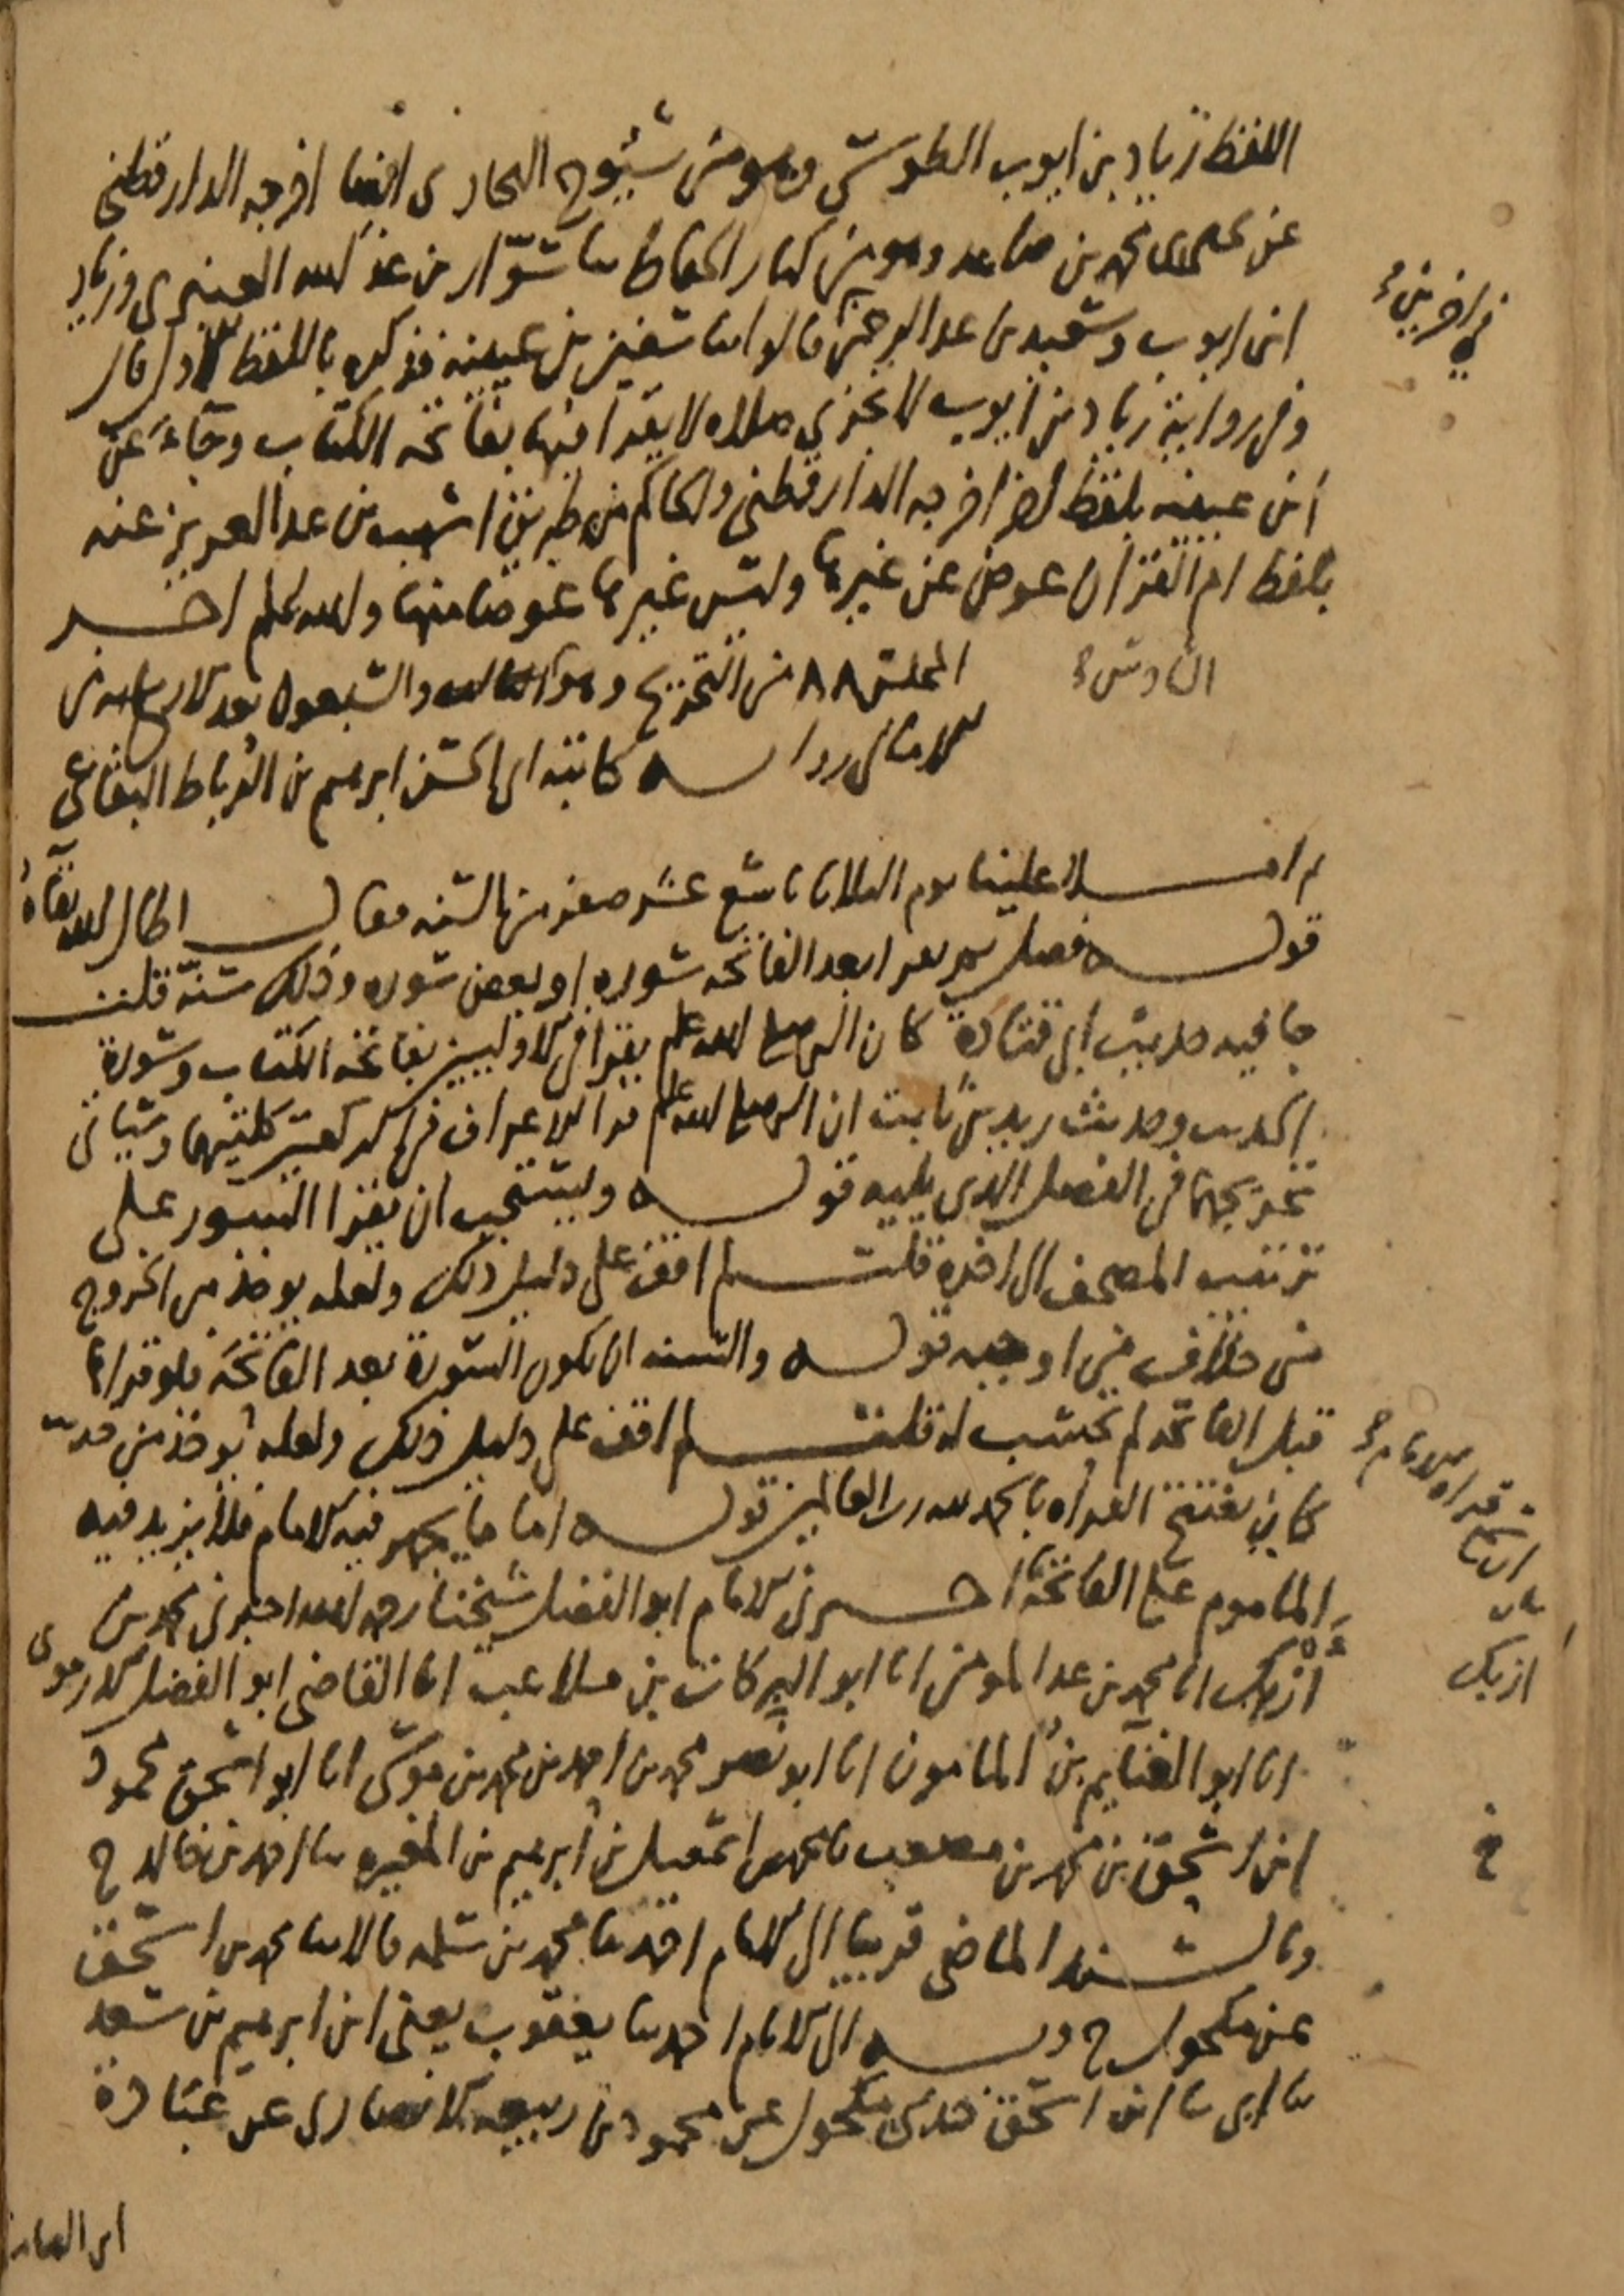 اللفظ زياد بن ايوب الطوسي وهو من شيوخ البخاري ايضا اخرجه الدارقطني
عن يحيى بن محمد بن صاعد وهو من كبار الحفاظ ثنا سوار بن عبد الله العنبري وزياد
في اخرين
ابن ايوب وسعيد بن عبد الرحمن قالوا ثنا سفين بن عيينه فذكره باللفظ الاول قال
وفي رواية زياد بن ايوب لا تجزي صلاه لا يقرا فيها بفاتحه الكتاب وجاء عن
ابن عيينه بلفظ اخر اخرجه الدارقطني والحاكم من طريق اشهب بن عبد العزيز عنه
بلفظ ام القران عوض عن غيرها وليس غيرها عوضا منها والله اعلم اخر
المجلس ٨٨ من التخريج وهو السادس والسبعون بعد الاربع من
السادس
الامالي رواية كاتبه ابي الحسن ابرهيم بن الرباط البقاعي
ثم املا علينا يوم الثلاثا تاسع عشر صفر من السنه فقال اطال الله بقاه
قوله فصل ثم يقرا بعد الفاتحه سوره او بعض سوره وذلك سنة قلت
جا فيه حديث ابي قتادة كان النبي صلى الله عليه وسلم يقرا في الاوليين بفاتحه الكتاب وسورة
الحديث وحديث زيد بن ثابت ان النبي صلى الله عليه وسلم قرا الاعراف في الركعتين كلتيهما وسياتي
تخريجهما في الفصل الذي يليه قوله ويستحب ان يقرا السور على
ترتيب المصحف الى اخره قلت لم اقف على دليل ذلك ولعله يوخذ من الخروج
من خلاف من اوجبه قوله والسنه ان تكون السورة بعد الفاتحه فلو قراها
قبل الفاتحه لم تحتسب له قلت لم اقف على دليل ذلك ولعله يوخذ من حديث
كان يفتتح القراه بالحمد لله رب العالمين قوله اما ما يجهر فيه الامام فلا يزيد فيه
الماموم على الفاتحة اخبرني الامام ابو الفضل شيخنا رحمه الله اخبرني محمد بن
أزبك انا محمد بن عبد المومن انا ابو البركات بن ملاعب انا القاضي ابو الفضل الارموي
ازبك
انا ابو الغنايم بن المامون انا ابو نصر محمد بن احمد بن محمد بن موسى انا ابو اسحق محمود
ابن اسحق بن محمد بن مصعب ثنا محمد بن اسمعيل بن ابرهيم بن المغيره ثنا احمد بن خالد ح
وبالسند الماضي قريبا الى الامام احمد ثنا محمد بن سلمه قالا ثنا محمد بن اسحق
عن مكحول ح وبه الى الامام احمد ثنا يعقوب يعني ابن ابرهيم بن سعد
ثنا ابي ثنا ابن اسحق حدثني مكحول عن محمود بن ربيعه الانصاري عن عبادة